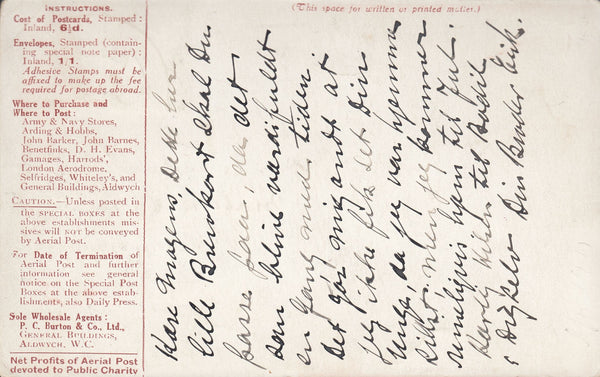 INSTRUCTIONS.
Cost of Postcards, Stamped :
Inland, 6½d.
Envelopes, Stamped (contain-
ing special note paper) :
Inland, 1/1.
Adhesive Stamps must be
affixed to make up the fee
required for postage abroad.
Where to Purchase and
Where to Post :
Army & Navy Stores,
Arding & Hobbs,
John Barker, John Barnes,
Benetfinks, D. H. Evans,
Gamages, Harrods',
London Aerodrome,
Selfridges, Whiteley's, and
General Buildings, Aldwych
CAUTION.—Unless posted in
the SPECIAL BOXES at the
above establishments mis-
sives will NOT be conveyed
by Aerial Post.
For Date of Termination of
Aerial Post and further
information see general
notice on the Special Post
Boxes at the above estab-
lishments, also Daily Press.
Sole Wholesale Agents :
P. C. Burton & Co., Ltd.,
GENERAL BUILDINGS,
ALDWYCH, W.C.
Net Profits of Aerial Post
devoted to Public Charity
(This space for written or printed matter.)
Kære Mogens, Dette her
lille Brevkort skal Du
passe paa, da det
kan blive værdifuldt
en Gang med tiden.
Det gør mig ondt at
jeg ikke fik set Din
Unge, da jeg var hjemme
men jeg kommer
rimeligvis hjem til Jul.
Kærlig hilsen til Bodil
& Digselv Din Broder Erik.